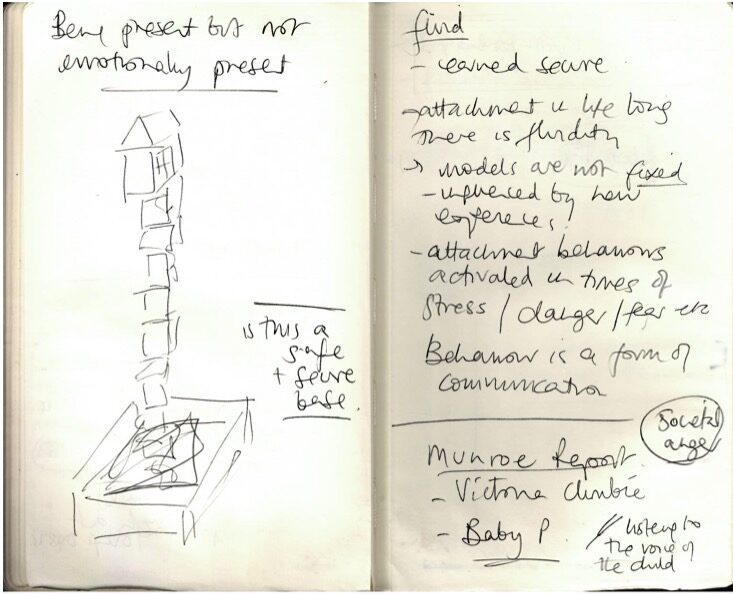 Being present but not
emotionally present
is this a
safe
+ secure
base.
find
- earned secure
→ attachment is life long
there is fluidity
→ models are not fixed
- influenced by new
experiences!
- attachment behaviours
activated in times of
stress / danger / fear etc
Behaviour is a form of
communication
Societal
anger
Munroe Report
- Victoria Climbie
- Baby P
listening to
the voice of
the child